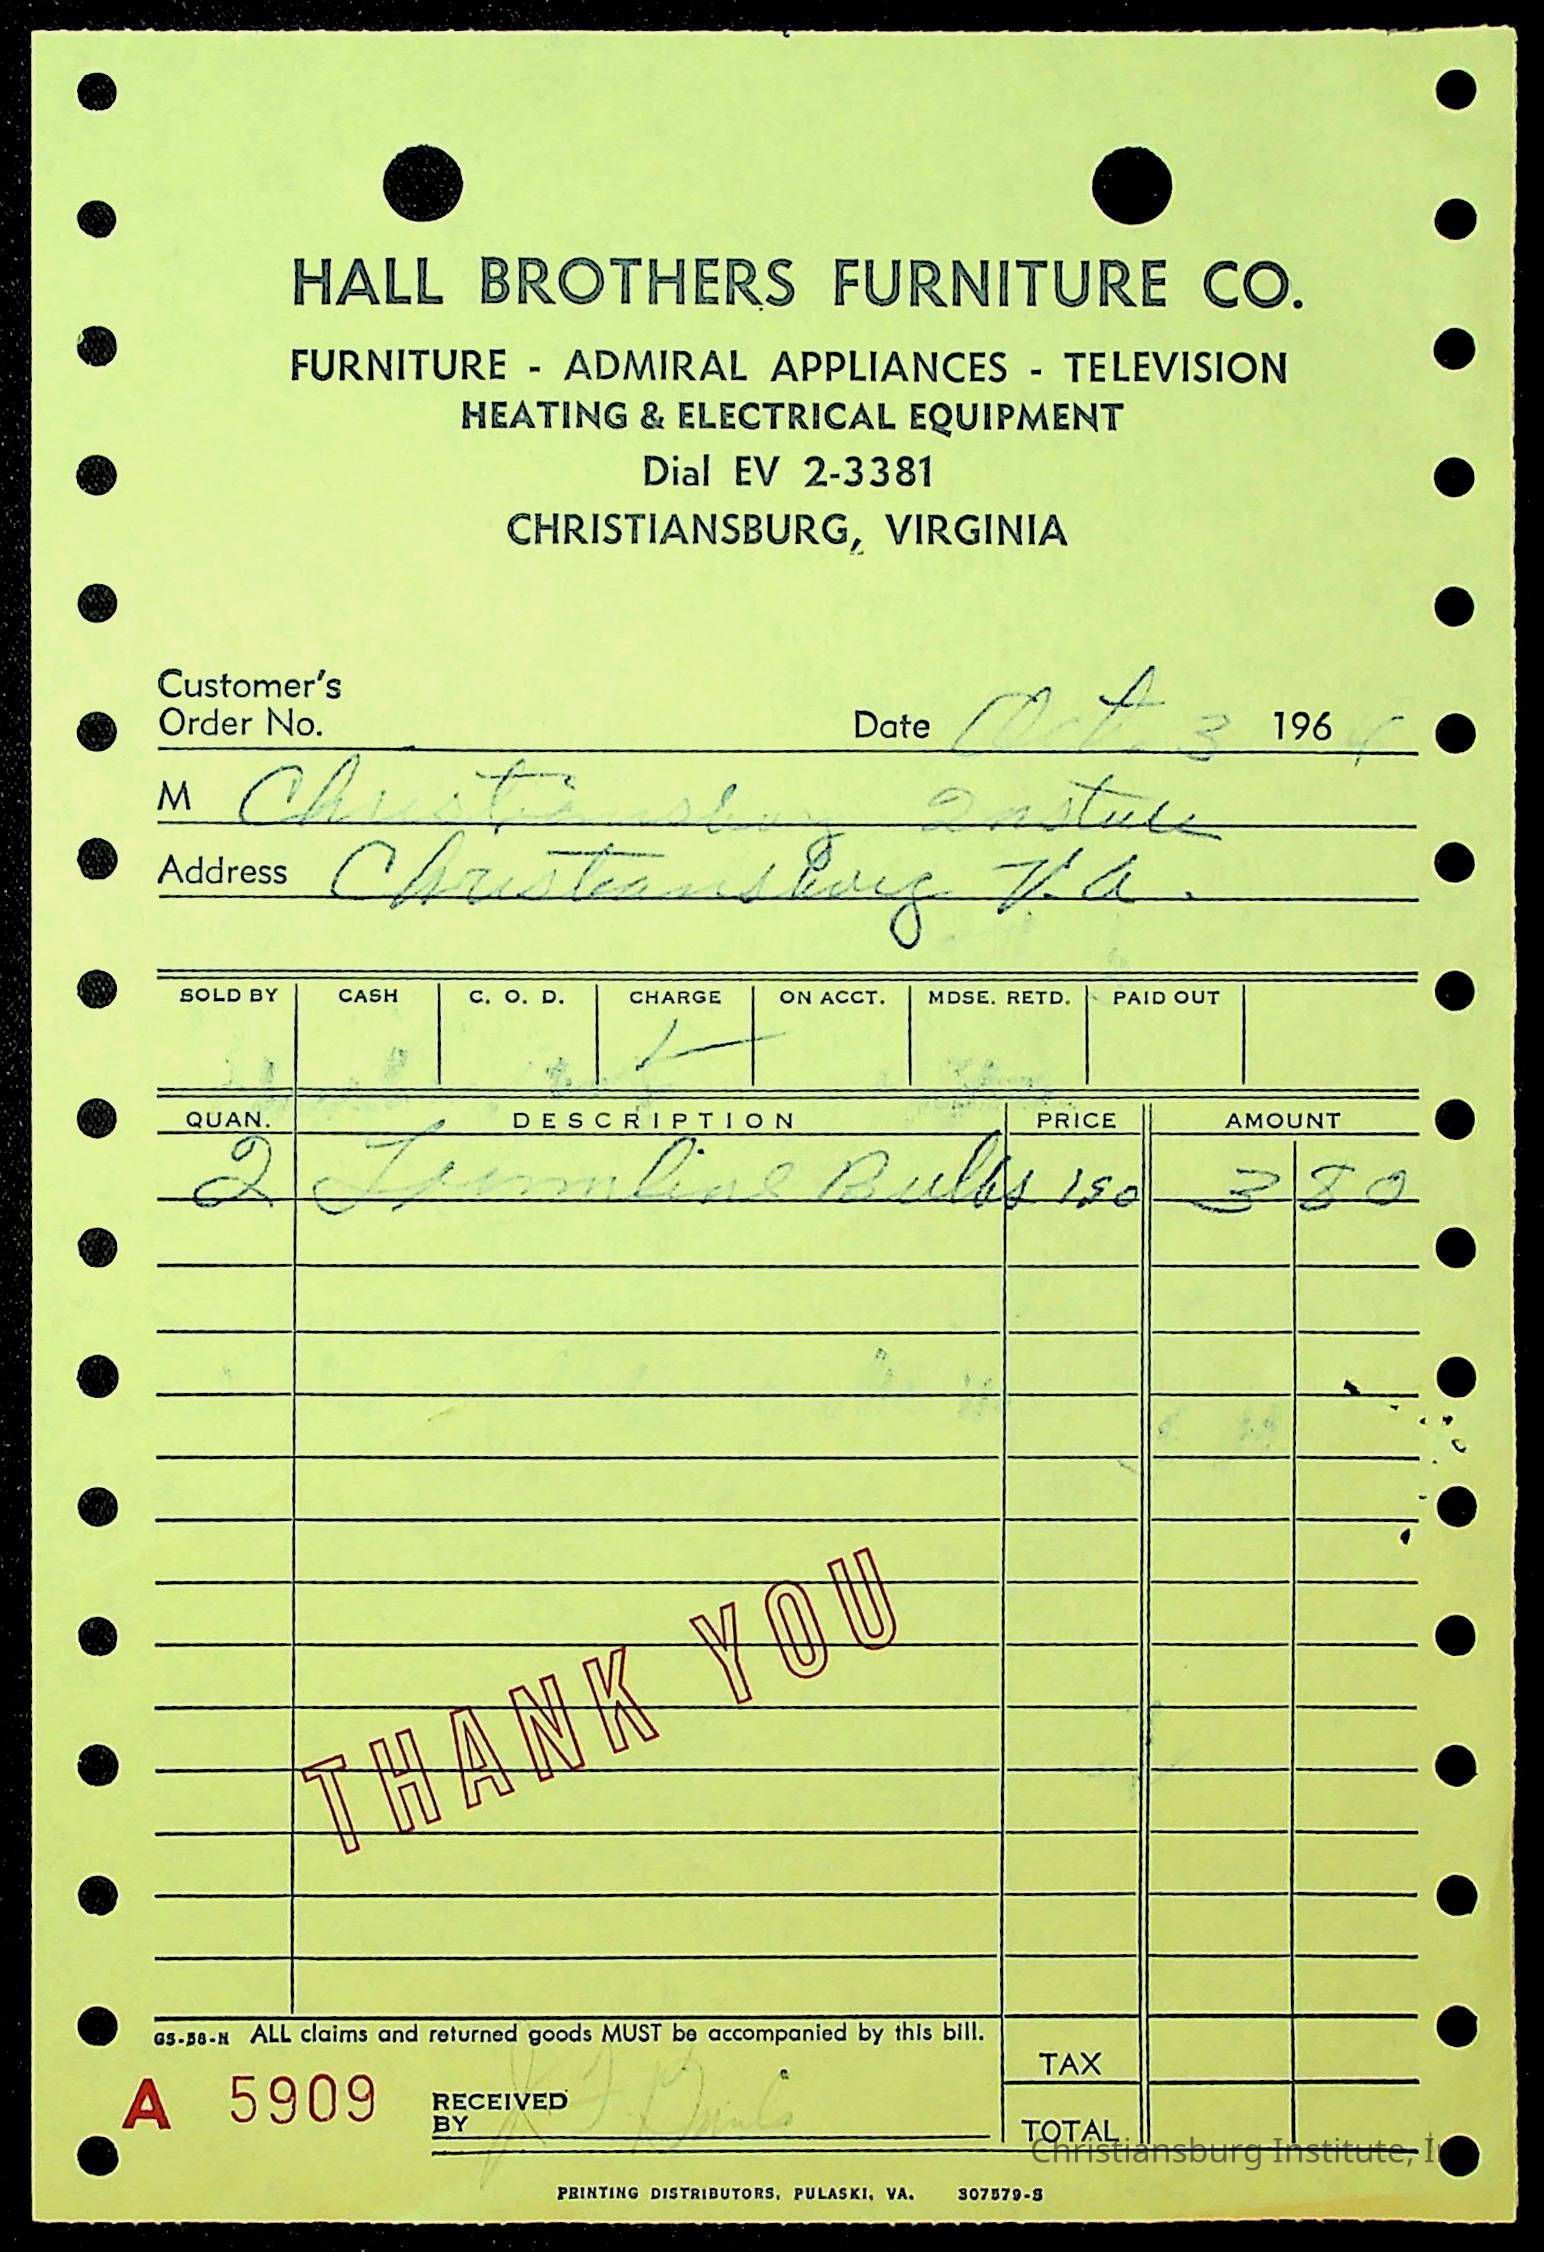 HALL BROTHERS FURNITURE CO.
FURNITURE - ADMIRAL APPLIANCES - TELEVISION
HEATING & ELECTRICAL EQUIPMENT
Dial EV 2-3381
CHRISTIANSBURG, VIRGINIA
Customer's
Order No.
Date Oct. 3 1964
M Christiansburg
Address Christiansburg Va.
SOLD BY CASH C. O. D. CHARGE ON ACCT. MDSE. RETD. PAID OUT
QUAN. DESCRIPTION PRICE AMOUNT
2 Bulbs 190 3 80
THANK YOU
GS-58-N ALL claims and returned goods MUST be accompanied by this bill.
TAX
A 5909 RECEIVED
BY
TOTAL
Christiansburg Institute,
PRINTING DISTRIBUTORS, PULASKI, VA. 307579-S